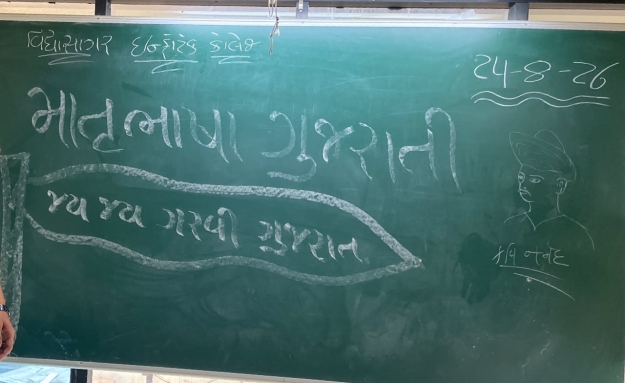 વિદ્યાસાગર ઇન્ફોટેક કોલેજ
24-8-26
માતૃભાષા ગુજરાતી
જય જય ગરવી ગુજરાત
કવિ નર્મદ